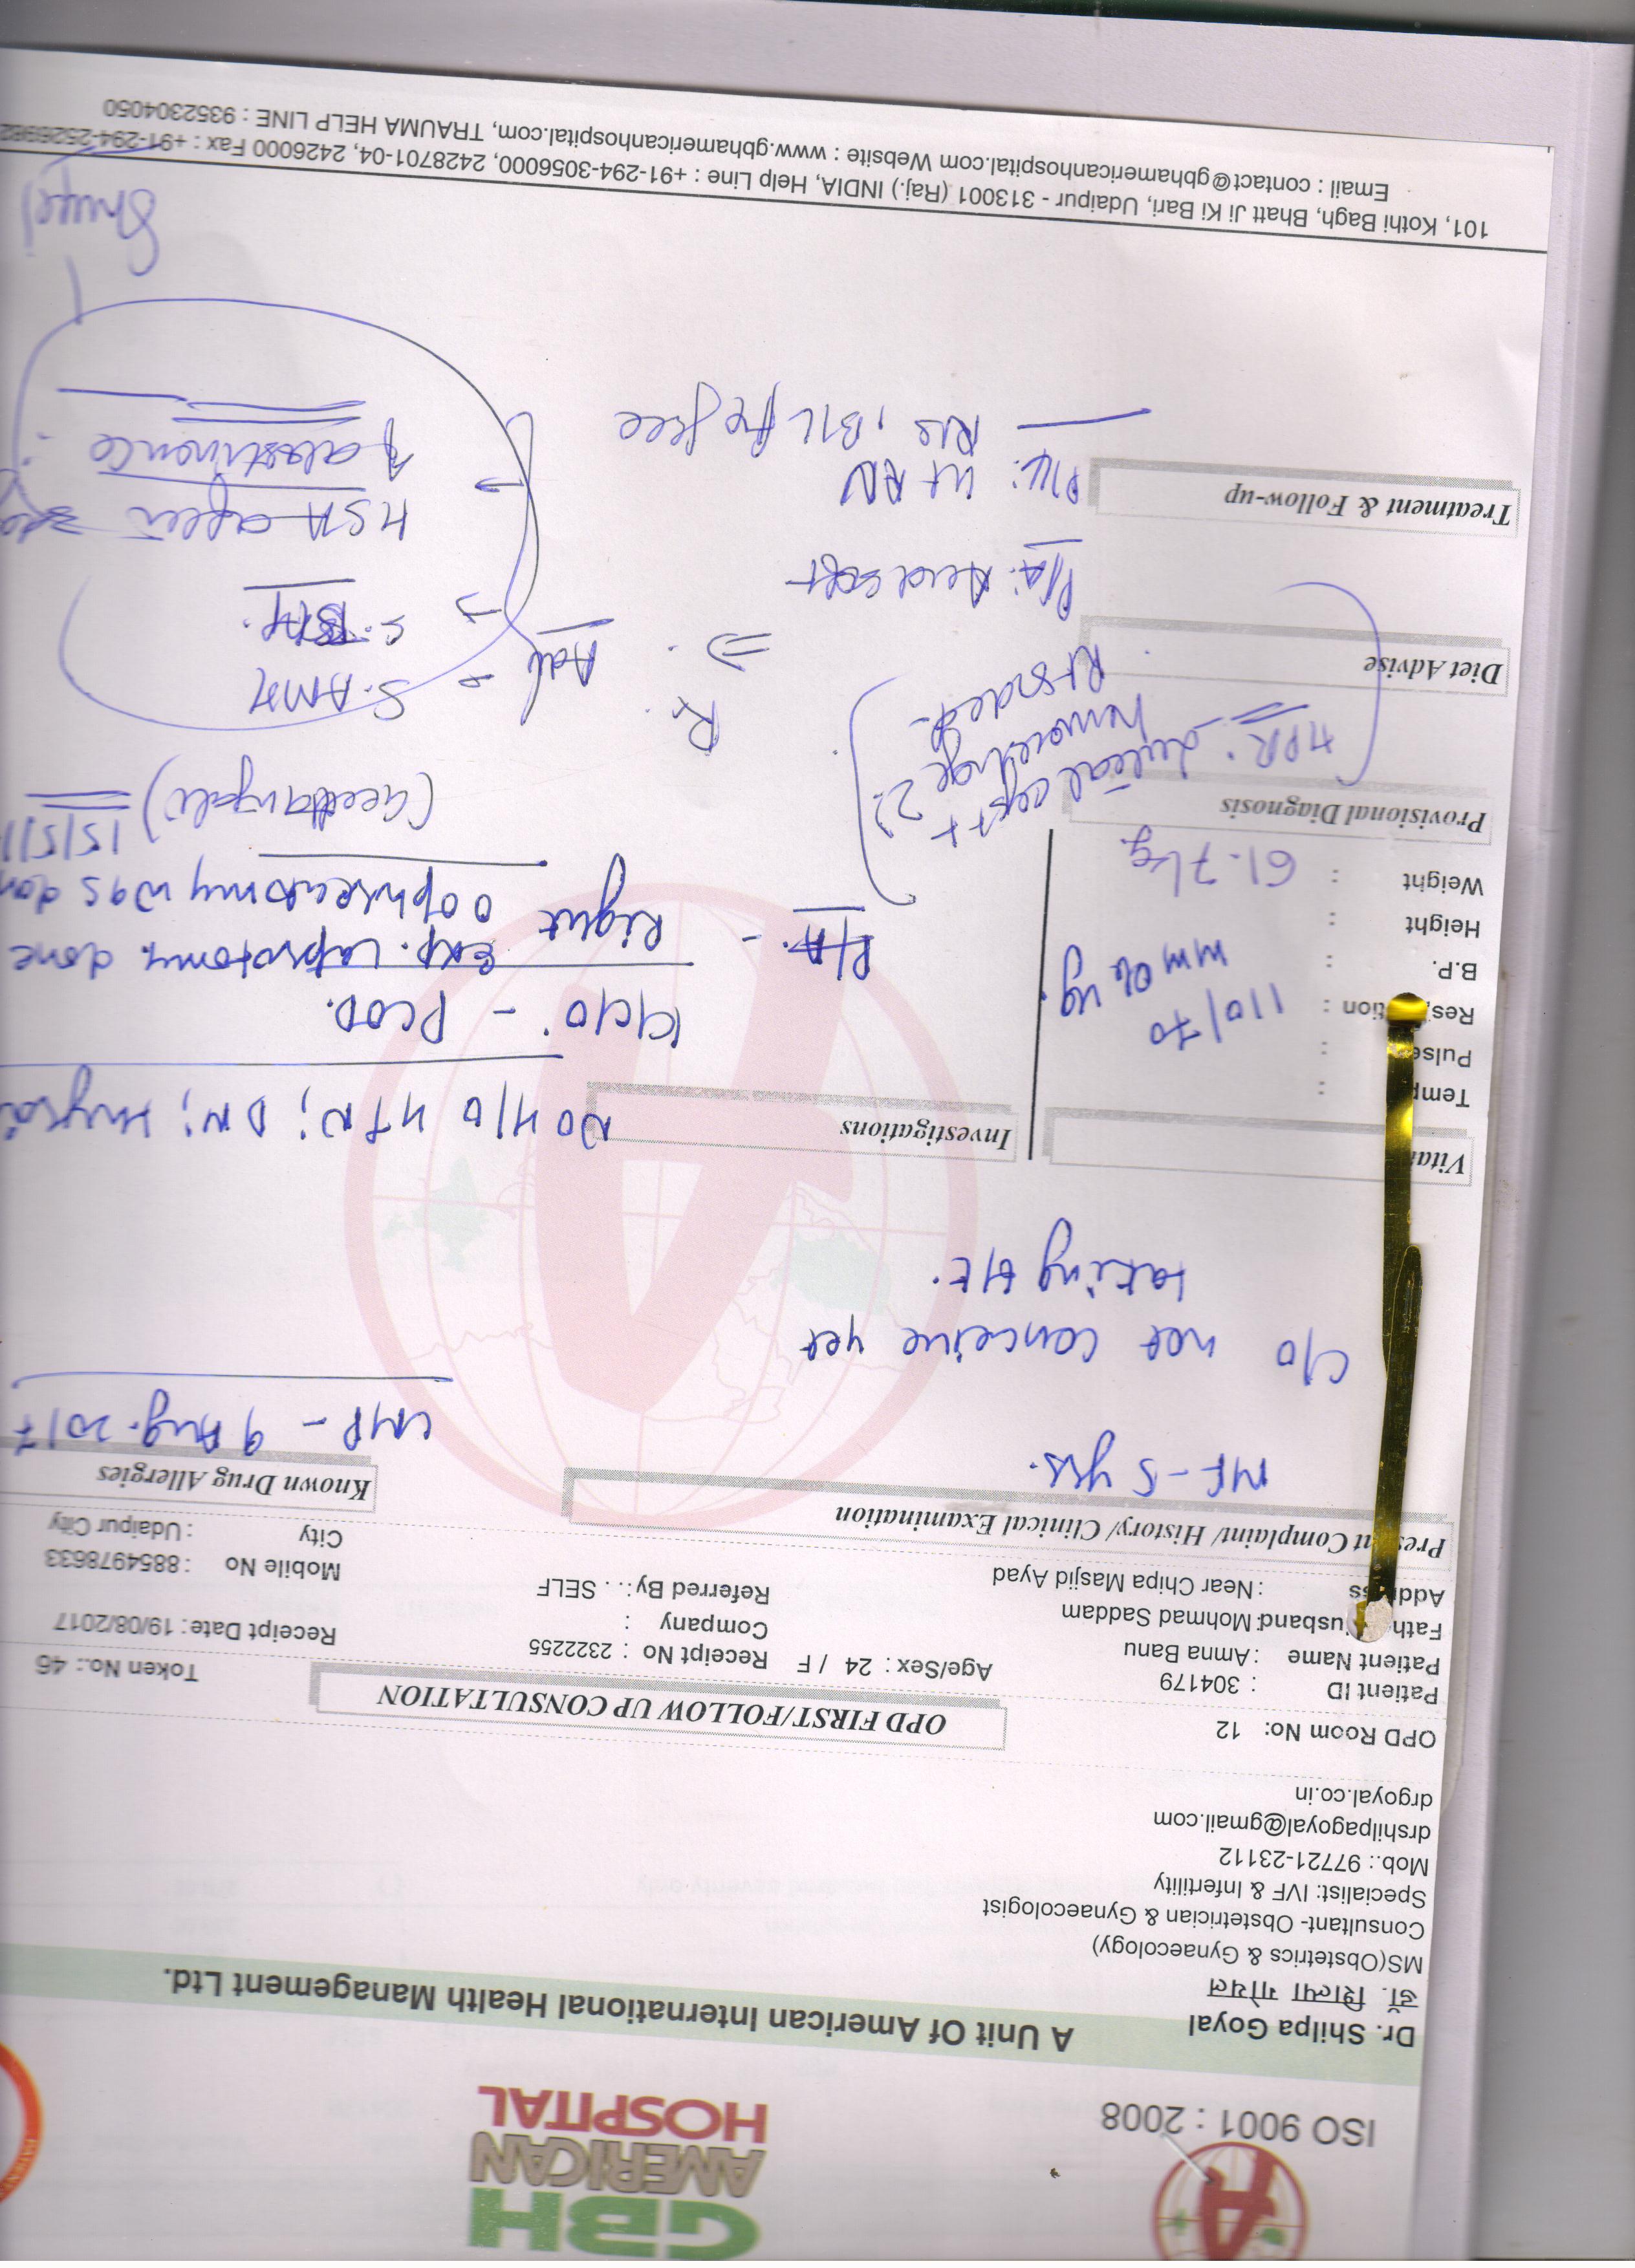 ISO 9001 : 2008
GBH
AMERICAN
HOSPITAL
A Unit Of American International Health Management Ltd.
Dr. Shilpa Goyal
डॉ. शिल्पा गोयल
MS(Obstetrics & Gynaecology)
Consultant- Obstetrician & Gynaecologist
Specialist: IVF & Infertility
Mob.: 97721-23112
drshilpagoyal@gmail.com
drgoyal.co.in
OPD Room No: 12
OPD FIRST/FOLLOW UP CONSULTATION
Token No.: 46
Patient ID : 304179
Patient Name : Amna Banu
Age/Sex : 24 / F
Receipt No : 2322255
Receipt Date : 19/08/2017
Fath usband: Mohmad Saddam
Company :
Mobile No : 8854978633
Add ss : Near Chipa Masjid Ayad
Referred By: . . SELF
City : Udaipur City
Pres t Complaint/ History/ Clinical Examination
Known Drug Allergies
MF - 5 yrs.
LMP - 9 Aug. 2017
C/O not conceive yet
taking t/t.
Vita
Investigations
NO H/O HTN; DM;
Temp :
Pulse :
Res tion :
B.P. :
110/70
mm of Hg.
Height :
Weight : 61.7 kg.
K/C/O - PCOD.
Exp. Laprotomy done
Right oophrectomy was don
(Geetanjali) 15/5/1
Provisional Diagnosis
HPR: luteal cyst +
hemorrhage
Rt sided.
Rx.
Adv
S. AMH
Diet Advise
P/A:
HSA after
abstinence
Treatment & Follow-up
P/V: Ut RV
101, Kothi Bagh, Bhatt Ji Ki Bari, Udaipur - 313001 (Raj.) INDIA, Help Line : +91-294-3056000, 2428701-04, 2426000 Fax : +91-294-252698
Email : contact@gbhamericanhospital.com Website : www.gbhamericanhospital.com, TRAUMA HELP LINE : 9352304050